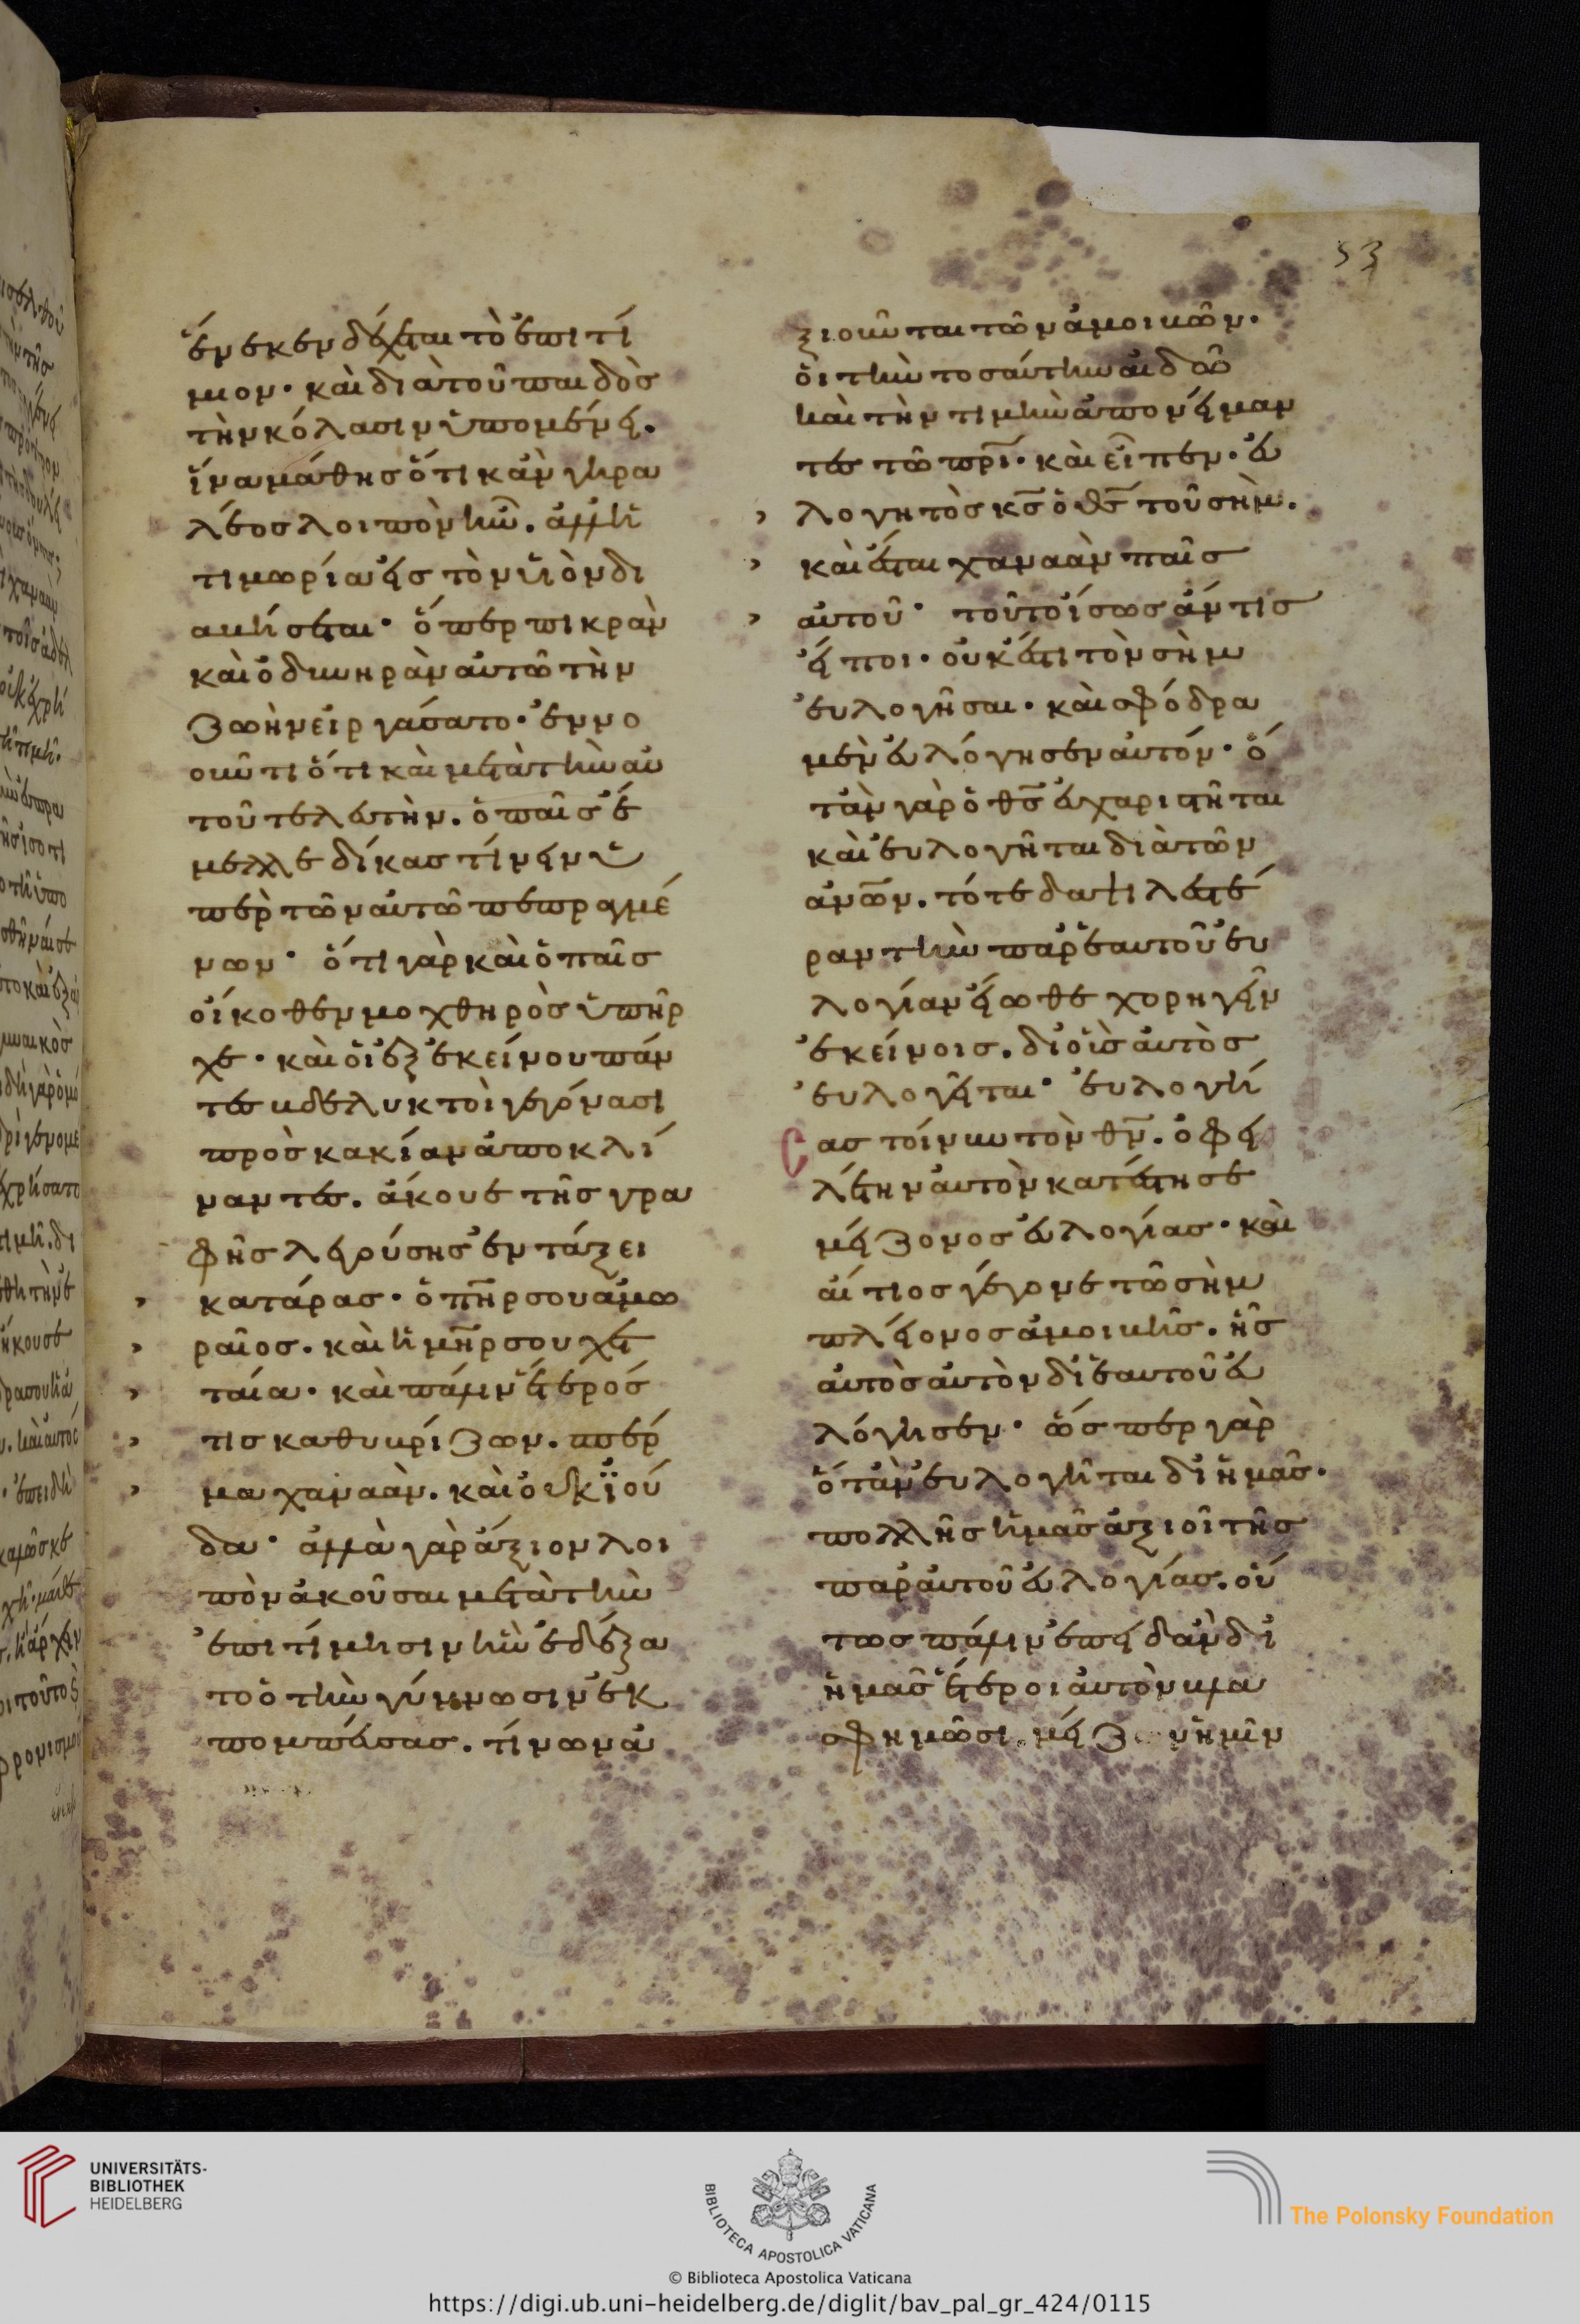 53
ἕνεκεν δέχεται τὸ ἐπιτί
μιον· καὶ διὰ τοῦ παιδὸς
τὴν κόλασιν ὑπομένει.
ἵνα μάθης ὅτι κἂν γηρα
λέος λοιπὸν ἦν. ἀλλ' ἡ
τιμωρία εἰς τὸν υἱὸν δι
αβήσεται· ὅπερ πικρὰν
καὶ ὀδυνηρὰν αὐτῶ τὴν
ζωὴν εἰργάσατο· ἐννο
οῦντι ὅτι καὶ μετὰ τὴν αὐ
τοῦ τελευτὴν. ὁ παῖς ἔ
μελλε δίκας τίνειν ὑ
πὲρ τῶν αὐτῶ πεπραγμέ
νων· ὅτι γὰρ καὶ ὁ παῖς
οἴκοθεν μοχθηρὸς ὑπῆρ
χε· καὶ οἱ ἐξ ἐκείνου πάν
τες βδελυκτοὶ γεγόνασι
πρὸς κακίαν ἀποκλί
ναντες. ἄκουε τῆς γρα
φῆς λεγούσης ἐν τάξει
κατάρας· ὁ πηρ σου ἀμω
ραῖος. καὶ ἡ μηρ σου χετ
ταία· καὶ πάλιν ἕτερός
τις καθυβρίζων. σπέρ
μα χαναὰν. καὶ οὐκ ϊού
δα· ἀλλὰ γὰρ ἄξιον λοι
πὸν ἀκοῦσαι μετὰ τὴν
ἐπιτίμησιν ἣν ἐδέξα
το ὁ τὴν γύμνωσιν ἐκ
πομπεύσας. τίνων ἀ
ξιοῦνται τῶν ἀμοιβῶν.
οἱ τὴν τοσαύτην αἰδῶ
καὶ τὴν τιμὴν ἀπονείμαν
τες τῶ πρι· καὶ εἶπεν· εὐ
λογητὸς κς ὁ θς τοῦ σὴμ.
καὶ ἔσται χαναὰν παῖς
αὐτοῦ· τοῦτο ἴσως ἄν τις
εἴποι· οὐκ ἔστι τὸν σὴμ
εὐλογῆσαι· καὶ σφόδρα
μὲν εὐλόγησεν αὐτόν· ὅ
ταν γὰρ ὁ θς εὐχαριστῆται
καὶ εὐλογῆται διὰ τῶν
ἀνων. τότε δαψιλεστέ
ραν τὴν παρ' ἑαυτοῦ εὐ
λογίαν εἴωθε χορηγεῖν
ἐκείνοις. δι' οἷς αὐτὸς
εὐλογεῖται· εὐλογή
σας τοίνυν τὸν θν. ὀφει
λέτην αὐτὸν κατέστησε
μείζονος εὐλογίας· καὶ
αἴτιος γέγονε τῶ σὴμ
πλείονος ἀμοιβῆς. ἧς
αὐτὸς αὐτὸν δι' ἑαυτοῦ εὐ
λόγησεν· ὥσπερ γὰρ
ὅταν εὐλογῆται δι' ἡμᾶς.
πολλῆς ἡμᾶς ἀξιοῖ τῆς
παρ' αὐτοῦ εὐλογίας. οὕ
τως πάλιν ἐπειδὰν δι'
ἡμᾶς ἕτεροι αὐτὸν βλα
σφημῶσι. ἡμῖν
UNIVERSITÄTS-
BIBLIOTHEK
HEIDELBERG
BIBLIOTECA APOSTOLICA VATICANA
© Biblioteca Apostolica Vaticana
The Polonsky Foundation
https://digi.ub.uni-heidelberg.de/diglit/bav_pal_gr_424/0115